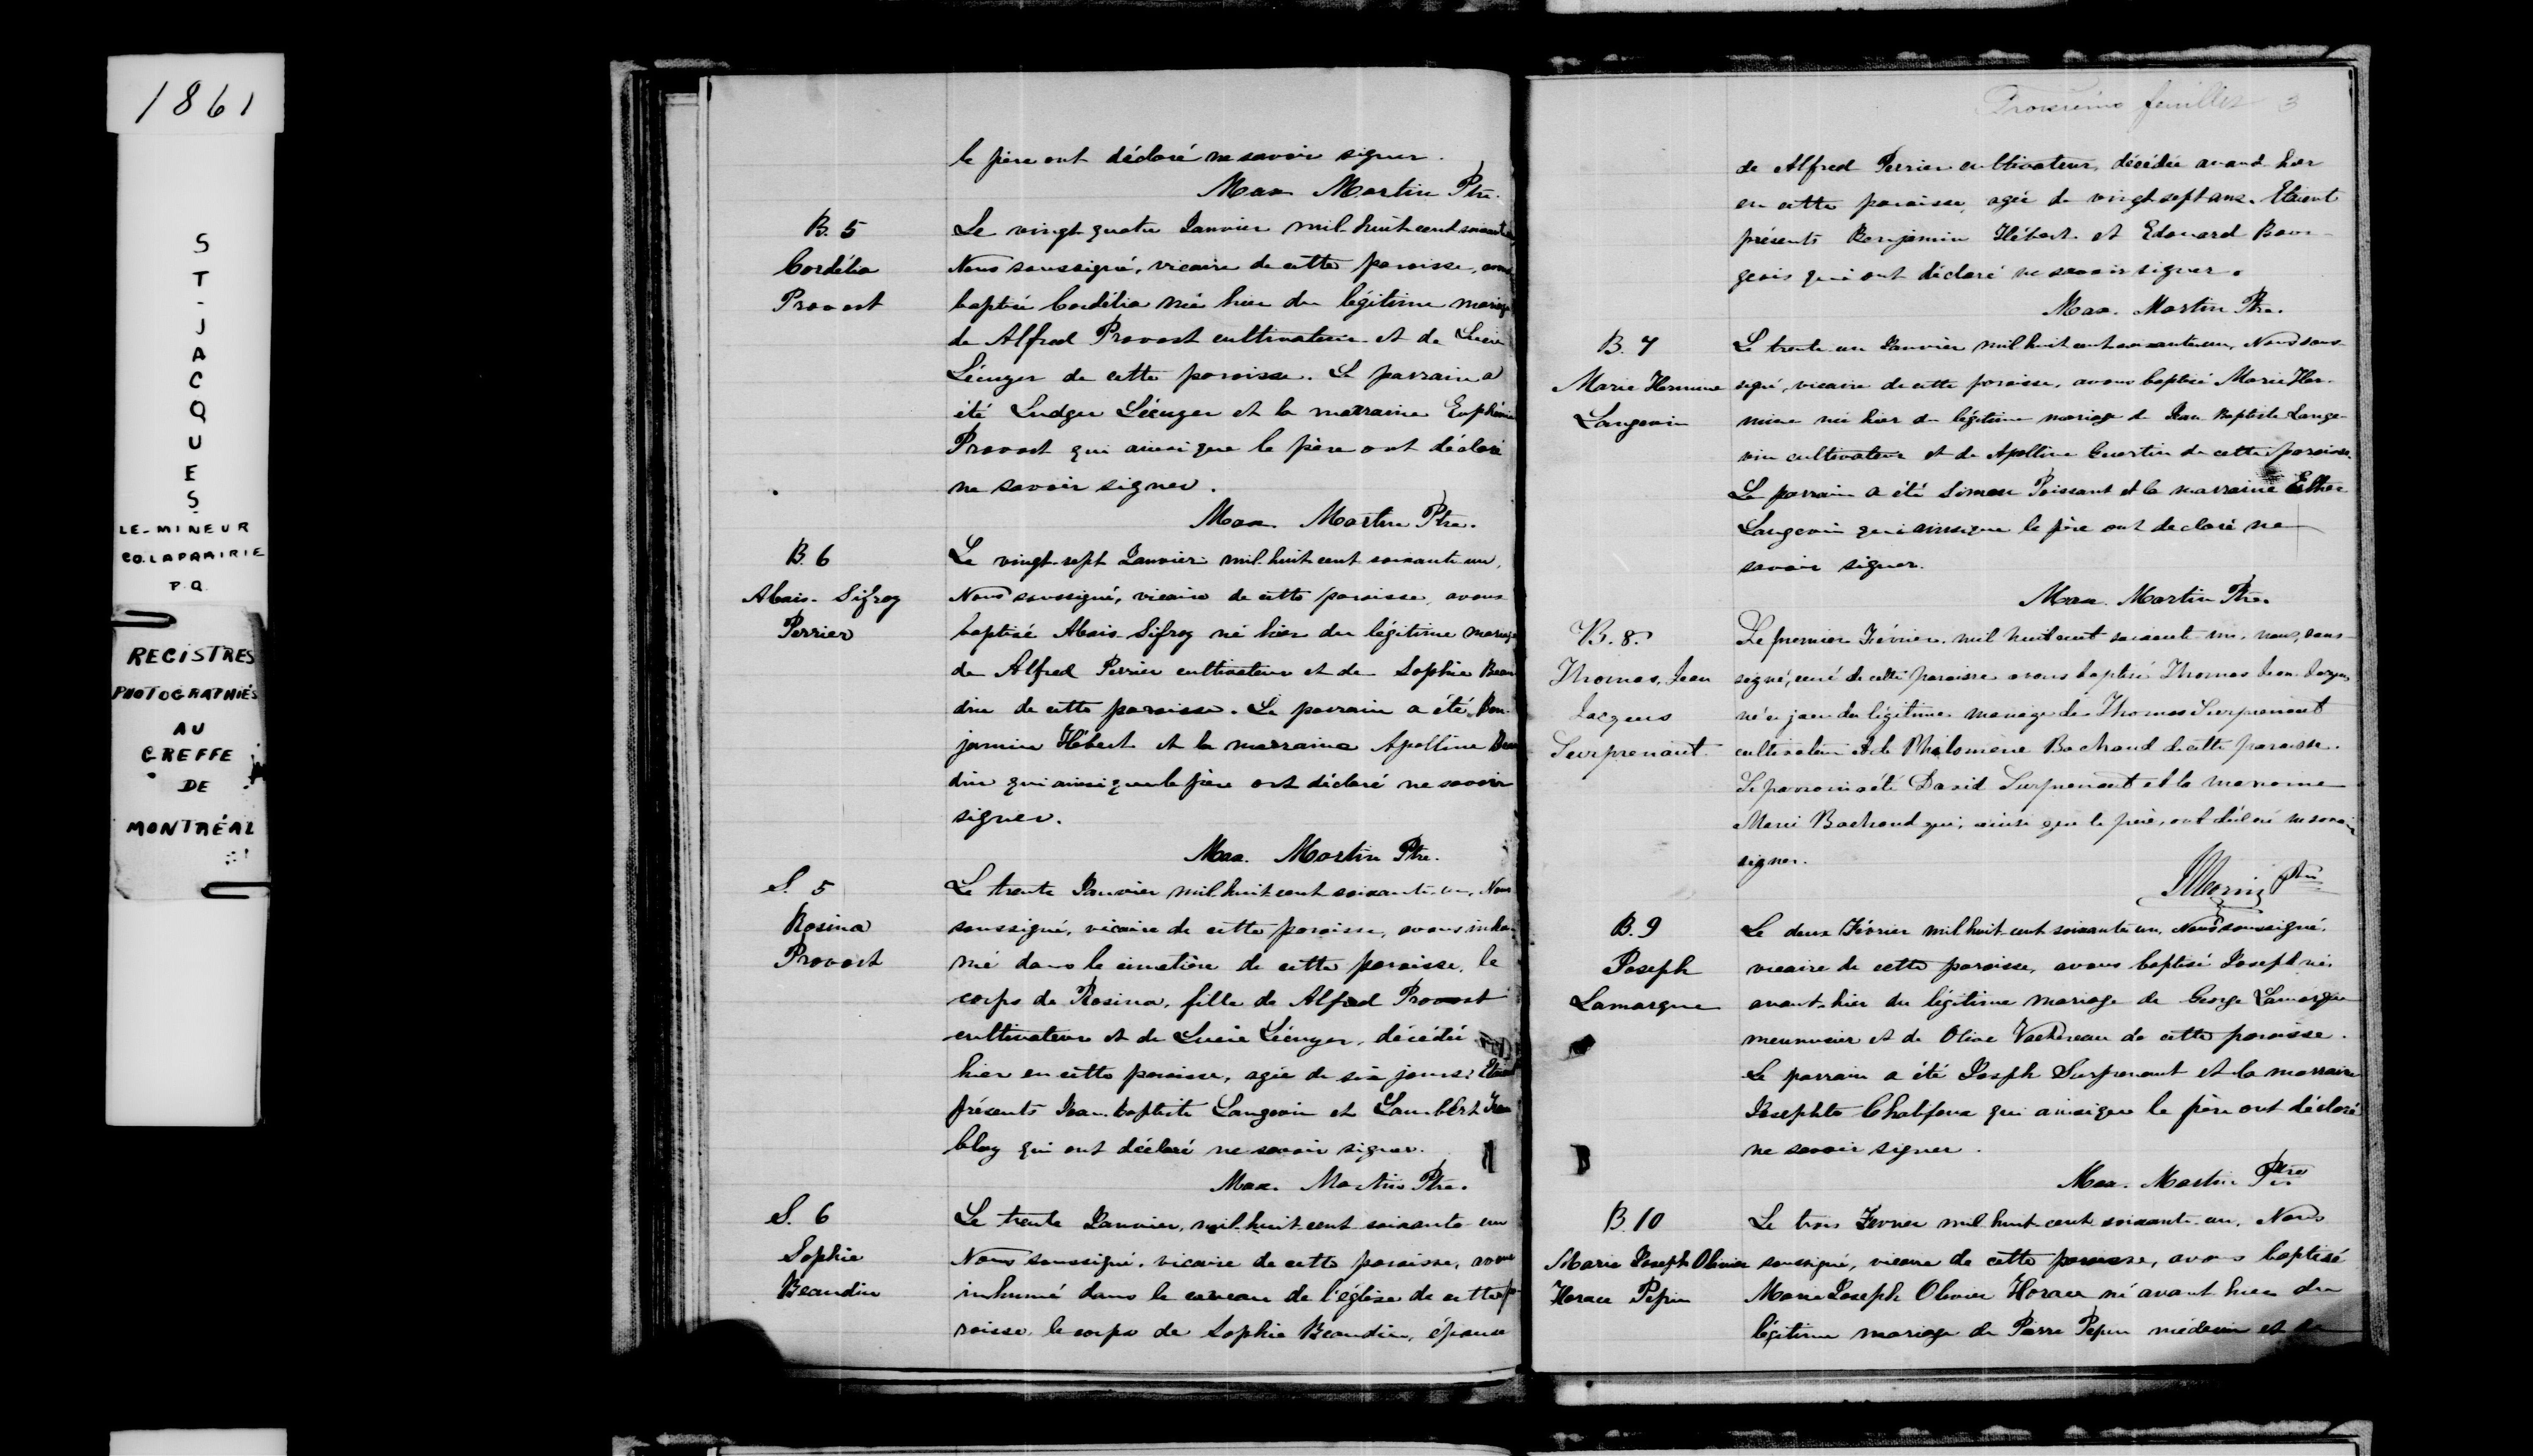 1861
ST-JACQUES
LE-MINEUR
CO. LAPRAIRIE
P.Q.
REGISTRES
PHOTOGRAPHIÉS
AU
GREFFE
DE
MONTRÉAL
le père ont déclaré ne savoir signer.
Max Martin Ptre.
B. 5
Cordélia
Provost
Le vingt quatre Janvier mil huit cent soixante
Nous soussigné, vicaire de cette paroisse, avons
baptisé Cordélia née hier du légitime mariage
de Alfred Provost cultivateur et de Lucie
Liénger de cette paroisse. Le parrain a
été Ludger Liénger et la marraine Euphémie
Provost qui ainsi que le père ont déclaré
ne savoir signer.
Max. Martin Ptre.
B. 6
Alexis Sifroy
Perrier
Le vingt-sept Janvier mil huit cent soixante un,
Nous soussigné, vicaire de cette paroisse, avons
baptisé Alexis Sifroy né hier du légitime mariage
de Alfred Perrier cultivateur et de Sophie Beau
din de cette paroisse. Le parrain a été Ben
jamin Hébert et la marraine Apolline Beau
din qui ainsi que le père ont déclaré ne savoir
signer.
Max. Martin Ptre.
S. 5
Rosina
Provost
Le trente Janvier mil huit cent soixante un, Nous
soussigné, vicaire de cette paroisse, avons inhu
mé dans le cimetière de cette paroisse, le
corps de Rosina, fille de Alfred Provost
cultivateur et de Lucie Liénger, décédée
hier en cette paroisse, agée de six jours. Etaient
présents Jean-baptiste Langevin et Lambert Trem
blay qui ont déclaré ne savoir signer.
Max. Martin Ptre.
S. 6
Sophie
Beaudin
Le trente Janvier, mil huit cent soixante un
Nous soussigné, vicaire de cette paroisse, avons
inhumé dans le caveau de l'église de cette pa
roisse, le corps de Sophie Beaudin, épouse
Troisième feuillet 3
de Alfred Perrier cultivateur, décédée avant hier
en cette paroisse, agée de vingt sept ans. Etaient
présents Benjamin Hébert et Edouard Bour-
geois qui ont déclaré ne savoir signer.
Max. Martin Ptre.
B. 7
Marie Hermine
Langevin
Le trente un Janvier mil huit cent soixante un, Nous sous-
signé, vicaire de cette paroisse, avons baptisé Marie Her-
mine née hier du légitime mariage de Jean Baptiste Lange-
vin cultivateur et de Apolline Guertin de cette paroisse.
Le parrain a été Simon Poissant et la marraine Esther
Langevin qui ainsi que le père ont declaré ne
savoir signer.
Max. Martin Ptre.
B. 8.
Thomas, Jean
Jacques
Surprenant
Le premier Février, mil huit cent soixante un, nous, sous-
signé, curé de cette paroisse avons baptisé Thomas Jean Jacques
né ce jour du légitime mariage de Thomas Surprenant
cultivateur et de Philomène Bachand de cette paroisse.
Le parrain a été David Surprenant et la marraine
Marie Bachand qui, ainsi que le père, ont déclaré ne savoir
signer.
Morin Ptre
B. 9
Joseph
Lamarque
Le deux Février mil huit cent soixante un, Nous soussigné,
vicaire de cette paroisse, avons baptisé Joseph né
avant-hier du légitime mariage de George Lamarque
meunier et de Olive Vachereau de cette paroisse.
Le parrain a été Joseph Surprenant et la marraine
Josephte Chalifoux qui ainsi que le père ont déclaré
ne savoir signer.
Max. Martin Ptre
B. 10
Marie Joseph Olivier
Horace Pepin
Le trois Fevrier mil huit cent soixante un, Nous
soussigné, vicaire de cette paroisse, avons baptisé
Marie Joseph Olivier Horace né avant hier du
légitime mariage de Pierre Pepin médecin et de